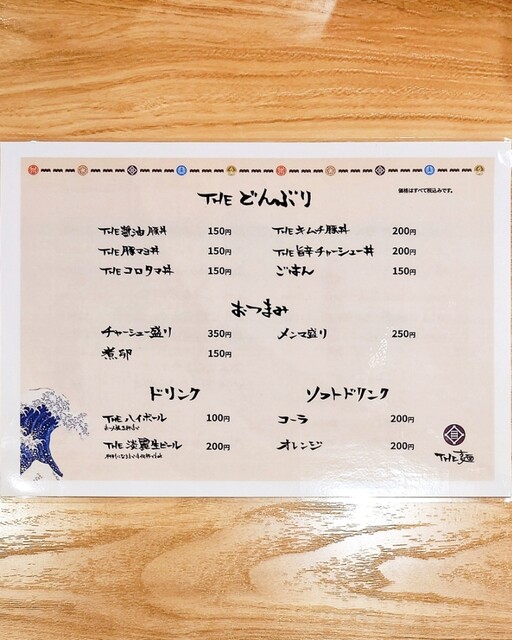 価格はすべて税込みです。
THE どんぶり
THE 醤油豚丼 150円
THE キムチ豚丼 200円
THE 豚マヨ丼 150円
THE 旨辛チャーシュー丼 200円
THE コロタマ丼 150円
ごはん 150円
おつまみ
チャーシュー盛り 350円
メンマ盛り 250円
煮卵 150円
ドリンク
ソフトドリンク
THE ハイボール 100円
コーラ 200円
THE 淡麗生ビール 200円
オレンジ 200円
THE 麺